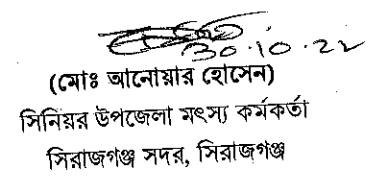 30.10.22
(মোঃ আনোয়ার হোসেন)
সিনিয়র উপজেলা মৎস্য কর্মকর্তা
সিরাজগঞ্জ সদর, সিরাজগঞ্জ